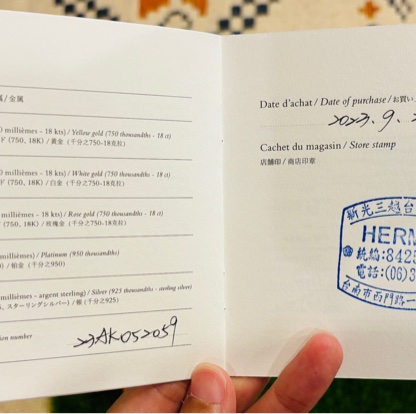 /金属
millièmes - 18 kts) / Yellow gold (750 thousandths - 18 ct)
ド (750, 18K) / 黃金 (千分之750-18克拉)
millièmes - 18 kts) / White gold (750 thousandths - 18 ct)
ド (750, 18K) / 白金 (千分之750-18克拉)
millièmes - 18 kts) / Rose gold (750 thousandths - 18 ct)
(750, 18K) / 玫瑰金 (千分之750-18克拉)
millièmes) / Platinum (950 thousandths)
/ 鉑金 (千分之950)
millièmes - argent sterling) / Silver (925 thousandths - sterling silver)
スターリングシルバー) / 銀 (千分之925)
number
23AK052059
Date d'achat / Date of purchase / お買い
2023.9.
Cachet du magasin / Store stamp
店舗印 / 商店印章
新光三越台
HERM
統編:8425
電話:(06)3
台南市西門路